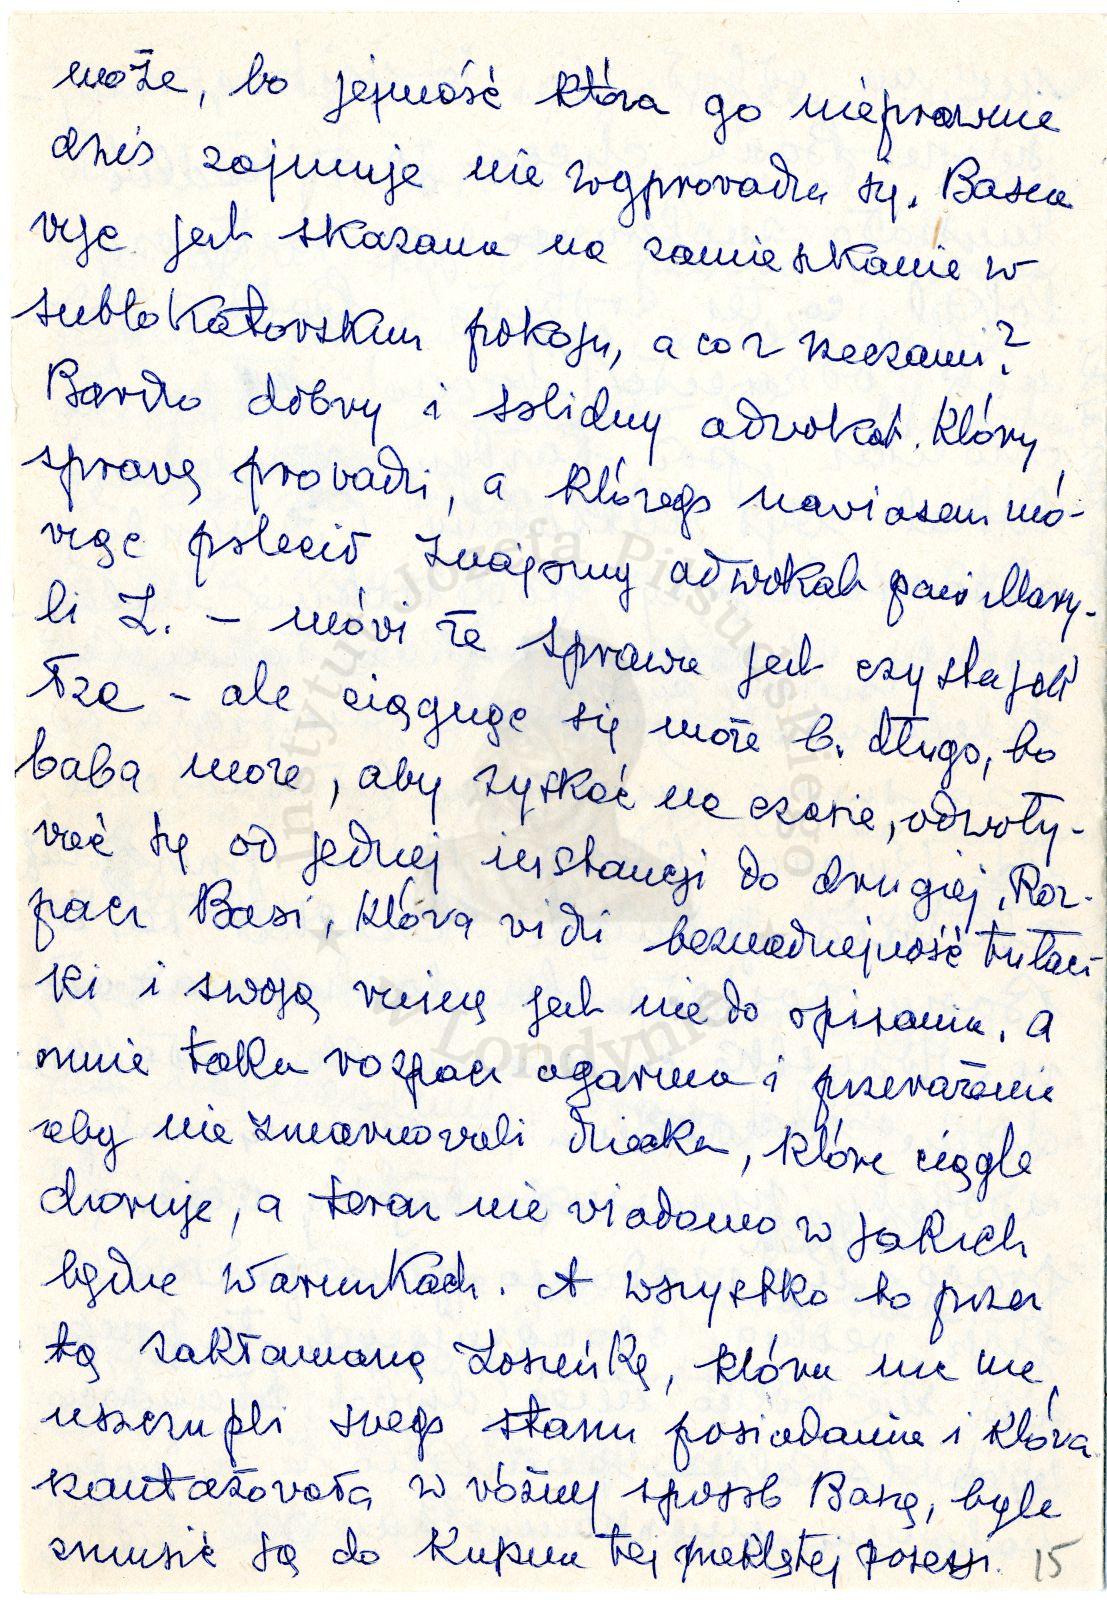 może, bo jejmość która go nieprawnie
dziś zajmuje nie wyprowadza się. Basia
więc jest skazana na zamieszkanie w
sublokatorskim pokoju, a co z rzeczami?
Bardzo dobry i solidny adwokat, który
sprawę prowadzi, a którego nawiasem mó-
wiąc polecił znajomy adwokat pani Mary-
li Z. – mówi że sprawa jest czysta jak
łza – ale ciągnąc się może b. długo, bo
baba może, aby zyskać na czasie, odwoły-
wać się od jednej instancji do drugiej. Roz-
pacz Basi, która widzi beznadziejność tułacz-
ki i swoją ruinę jest nie do opisania. A
mnie taka rozpacz ogarnia i przerażenie
żeby nie zmarnowali dziecka, które ciągle
choruje, a teraz nie wiadomo w jakich
będzie warunkach. A wszystko to przez
tą zakłamaną Zosieńkę, która nic nie
uszczupli swego stanu posiadania i która
szantażowała w różny sposób Basię, byle
zmusić ją do kupna tej przeklętej posesji.
15
Instytut Józefa Piłsudskiego
w Londynie